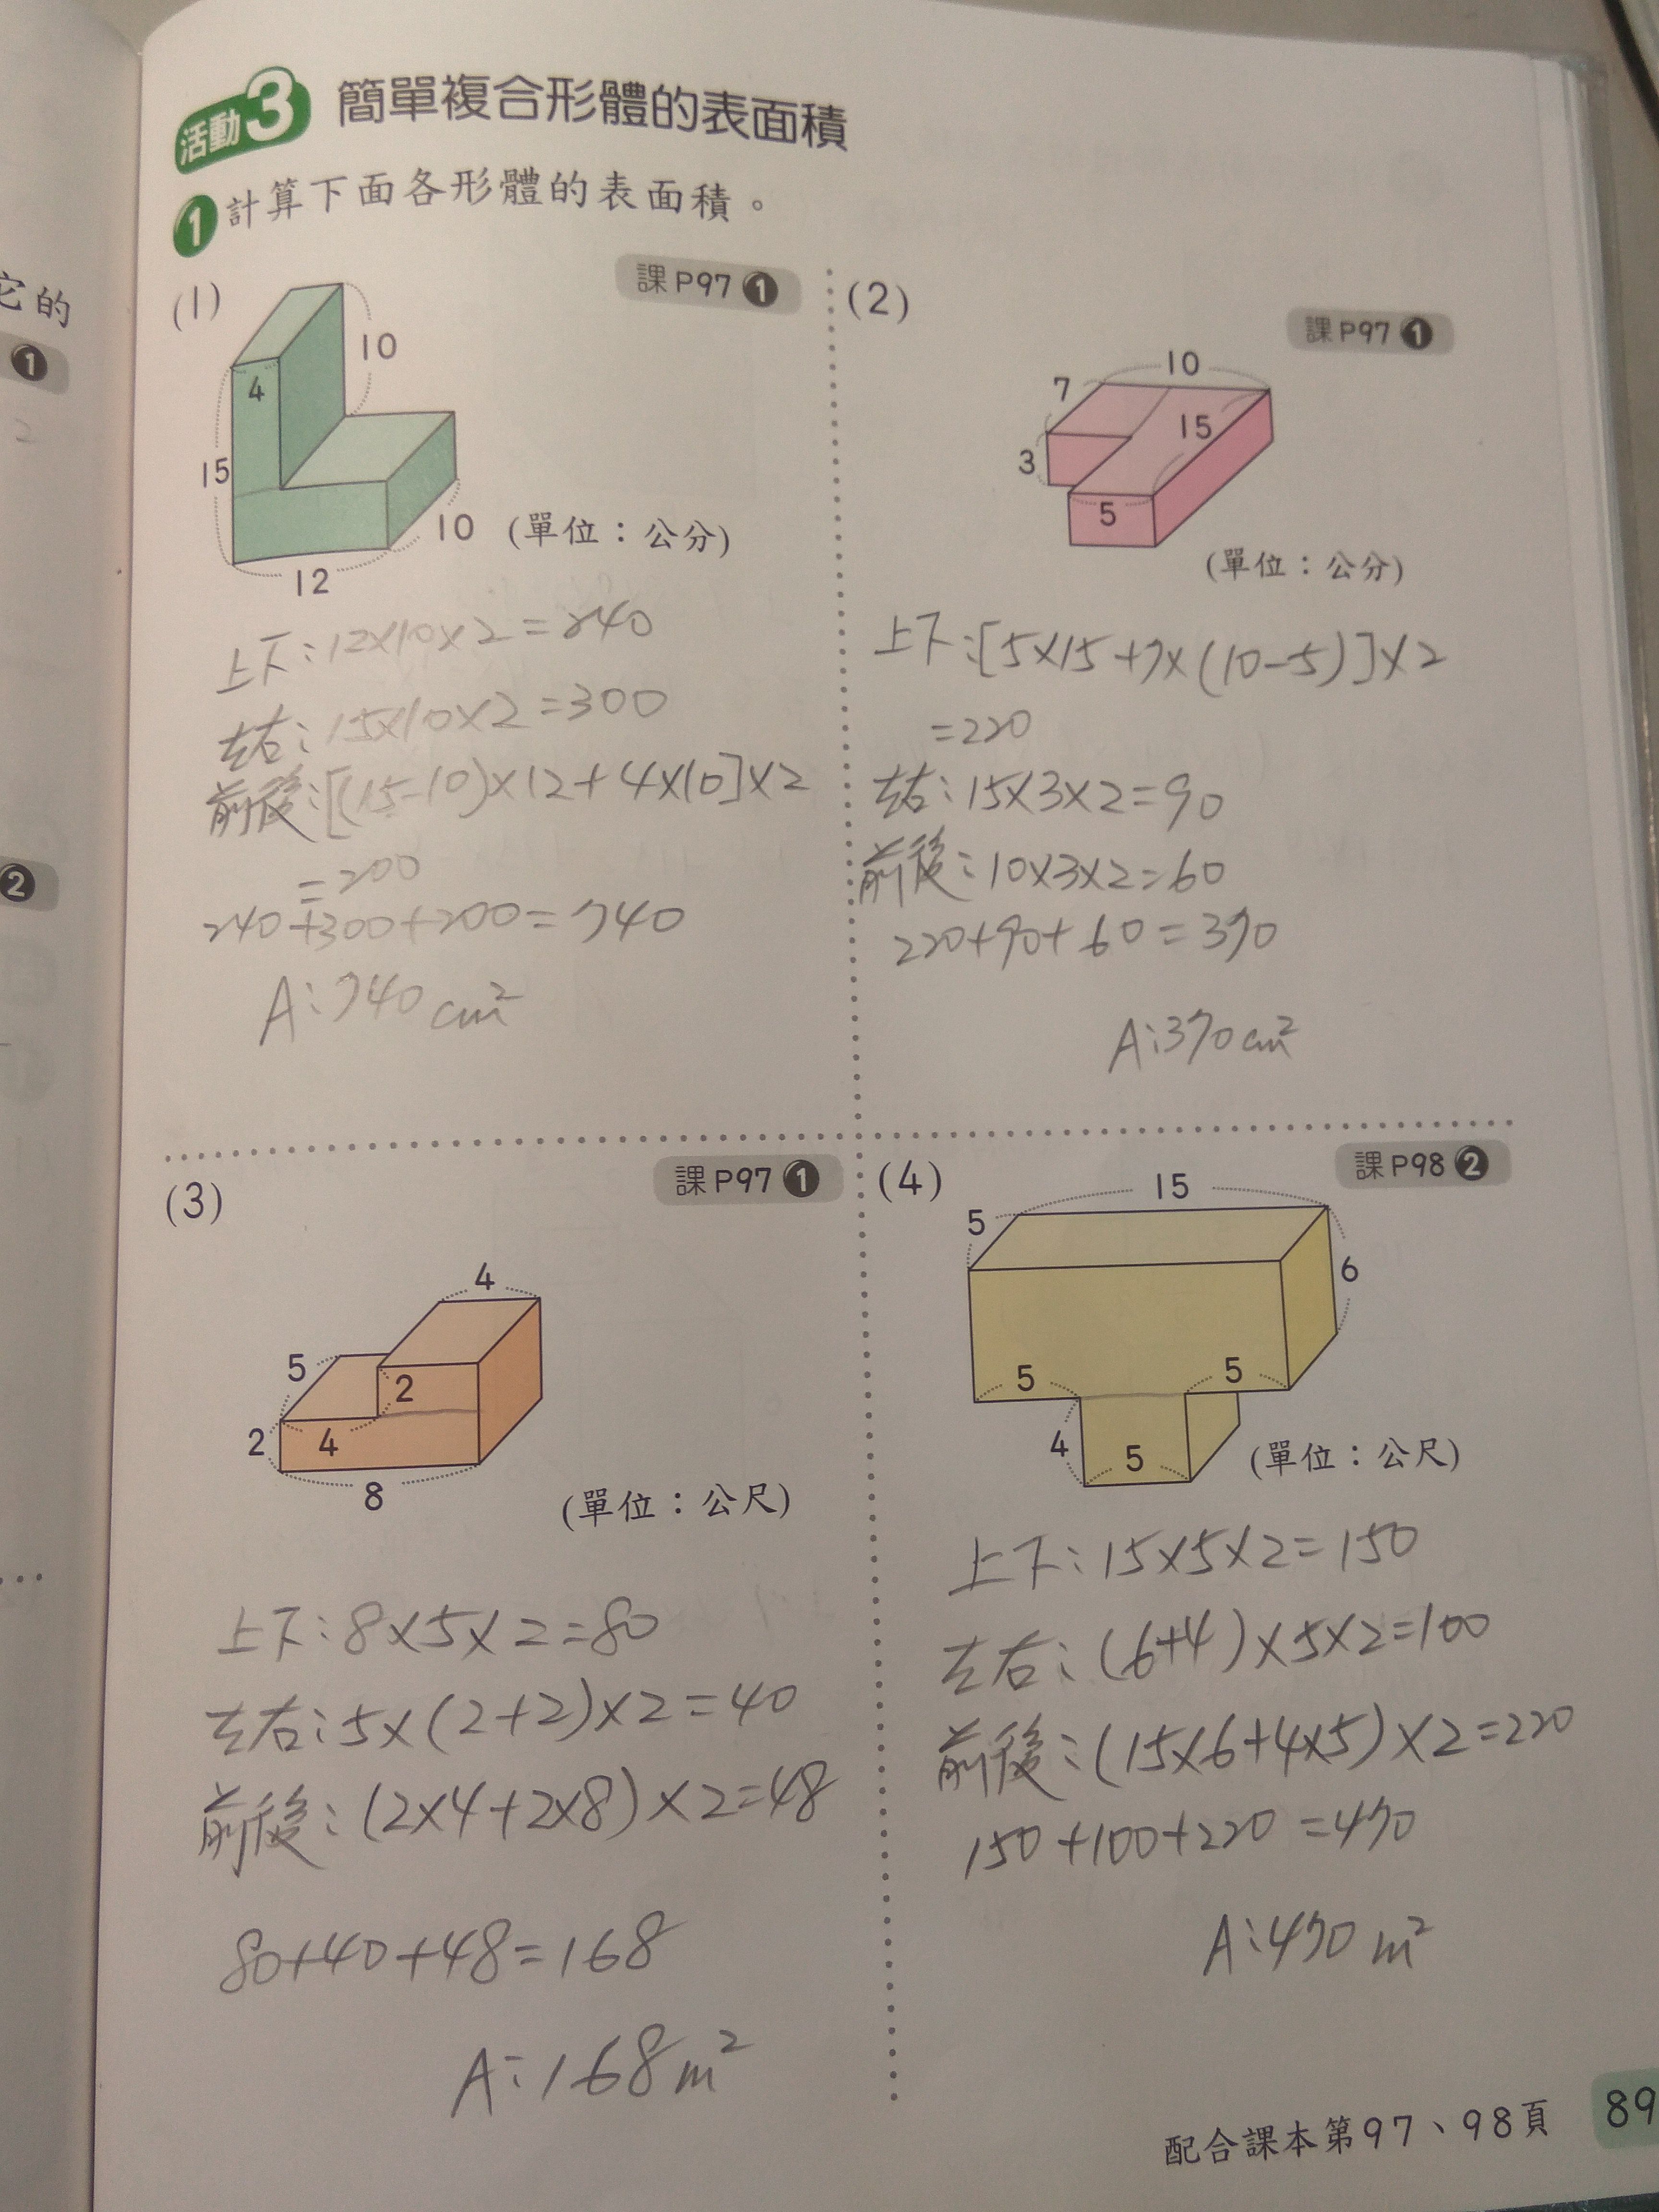 活動3 簡單複合形體的表面積
1 計算下面各形體的表面積。
它的
1
2
2
(1)
課P97 1
10
4
15
10
12
(單位：公分)
上下:12×10×2=240
左右:15×10×2=300
前後:[(15-10)×12+4×10]×2
=200
240+300+200=740
A:740cm²
(2)
課P97 1
10
7
15
3
5
(單位：公分)
上下:[5×15+7×(10-5)]×2
=220
左右:15×3×2=90
前後:10×3×2=60
220+90+60=370
A:370cm²
(3)
課P97 1
4
5
2
2
4
8
(單位：公尺)
上下:8×5×2=80
左右:5×(2+2)×2=40
前後:(2×4+2×8)×2=48
80+40+48=168
A:168m²
(4)
課P98 2
15
5
6
5
5
4
5
(單位：公尺)
上下:15×5×2=150
左右:(6+4)×5×2=100
前後:(15×6+4×5)×2=220
150+100+220=470
A:470m²
配合課本第97、98頁 89